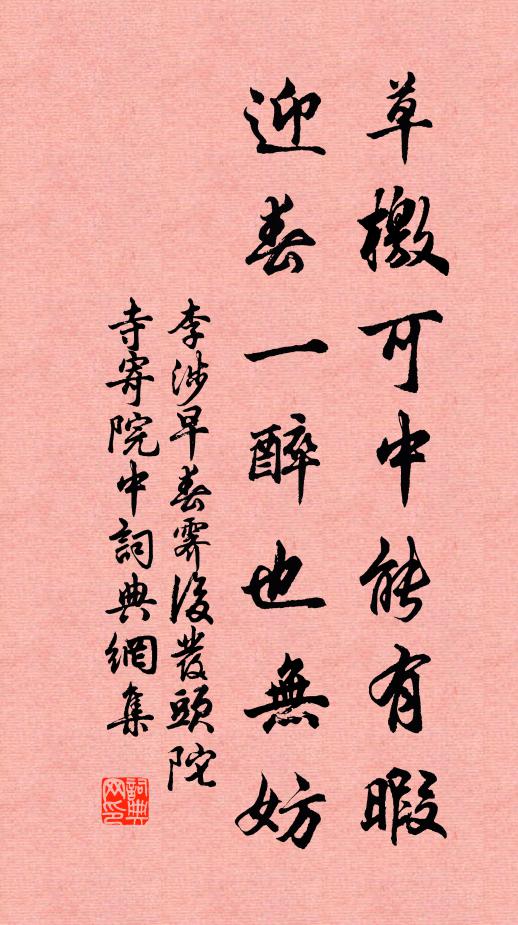 草檄可中能有暇
迎春一醉也無妨
李涉早春霽後發頭陀
寺寄院中詞典網集
詞典網印